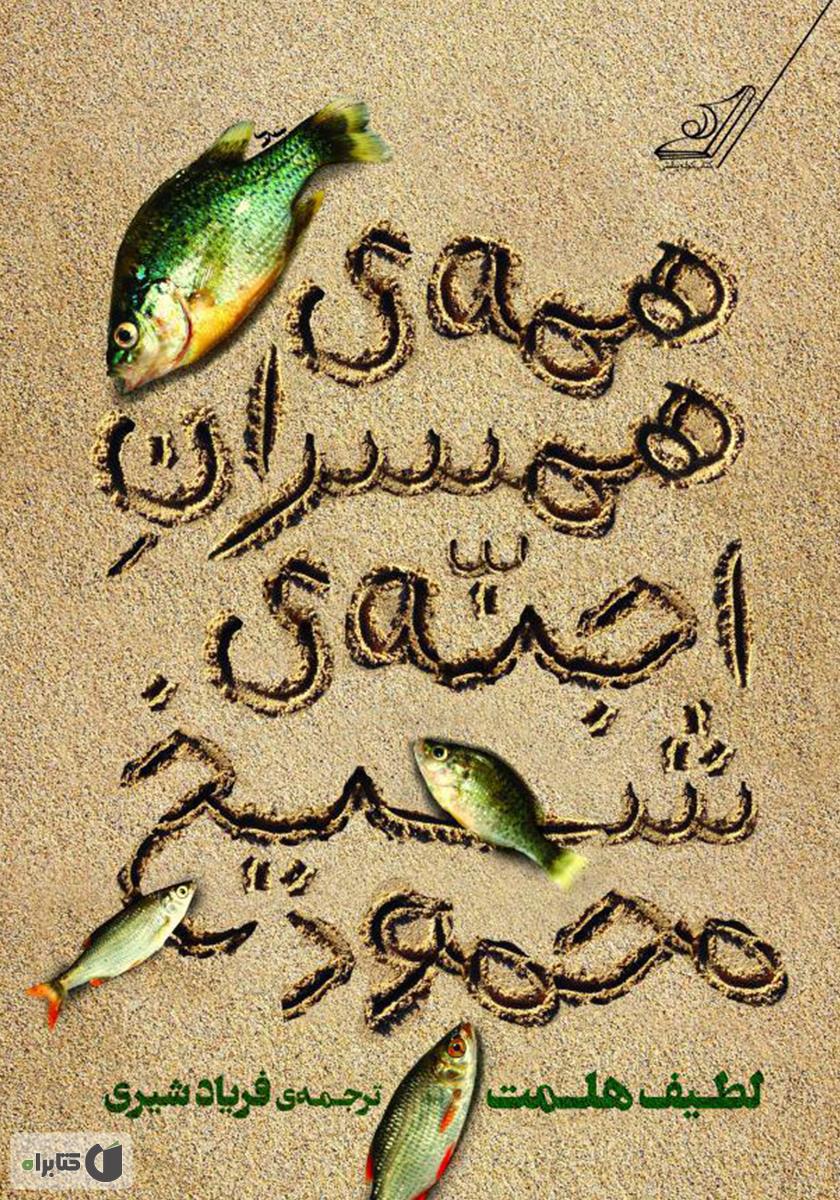 همه‌ی
همسرانِ
اجنّه‌ی
شیخ
محمود
لطیف هلمت
ترجمه‌ی فریاد شیری
کتابراه